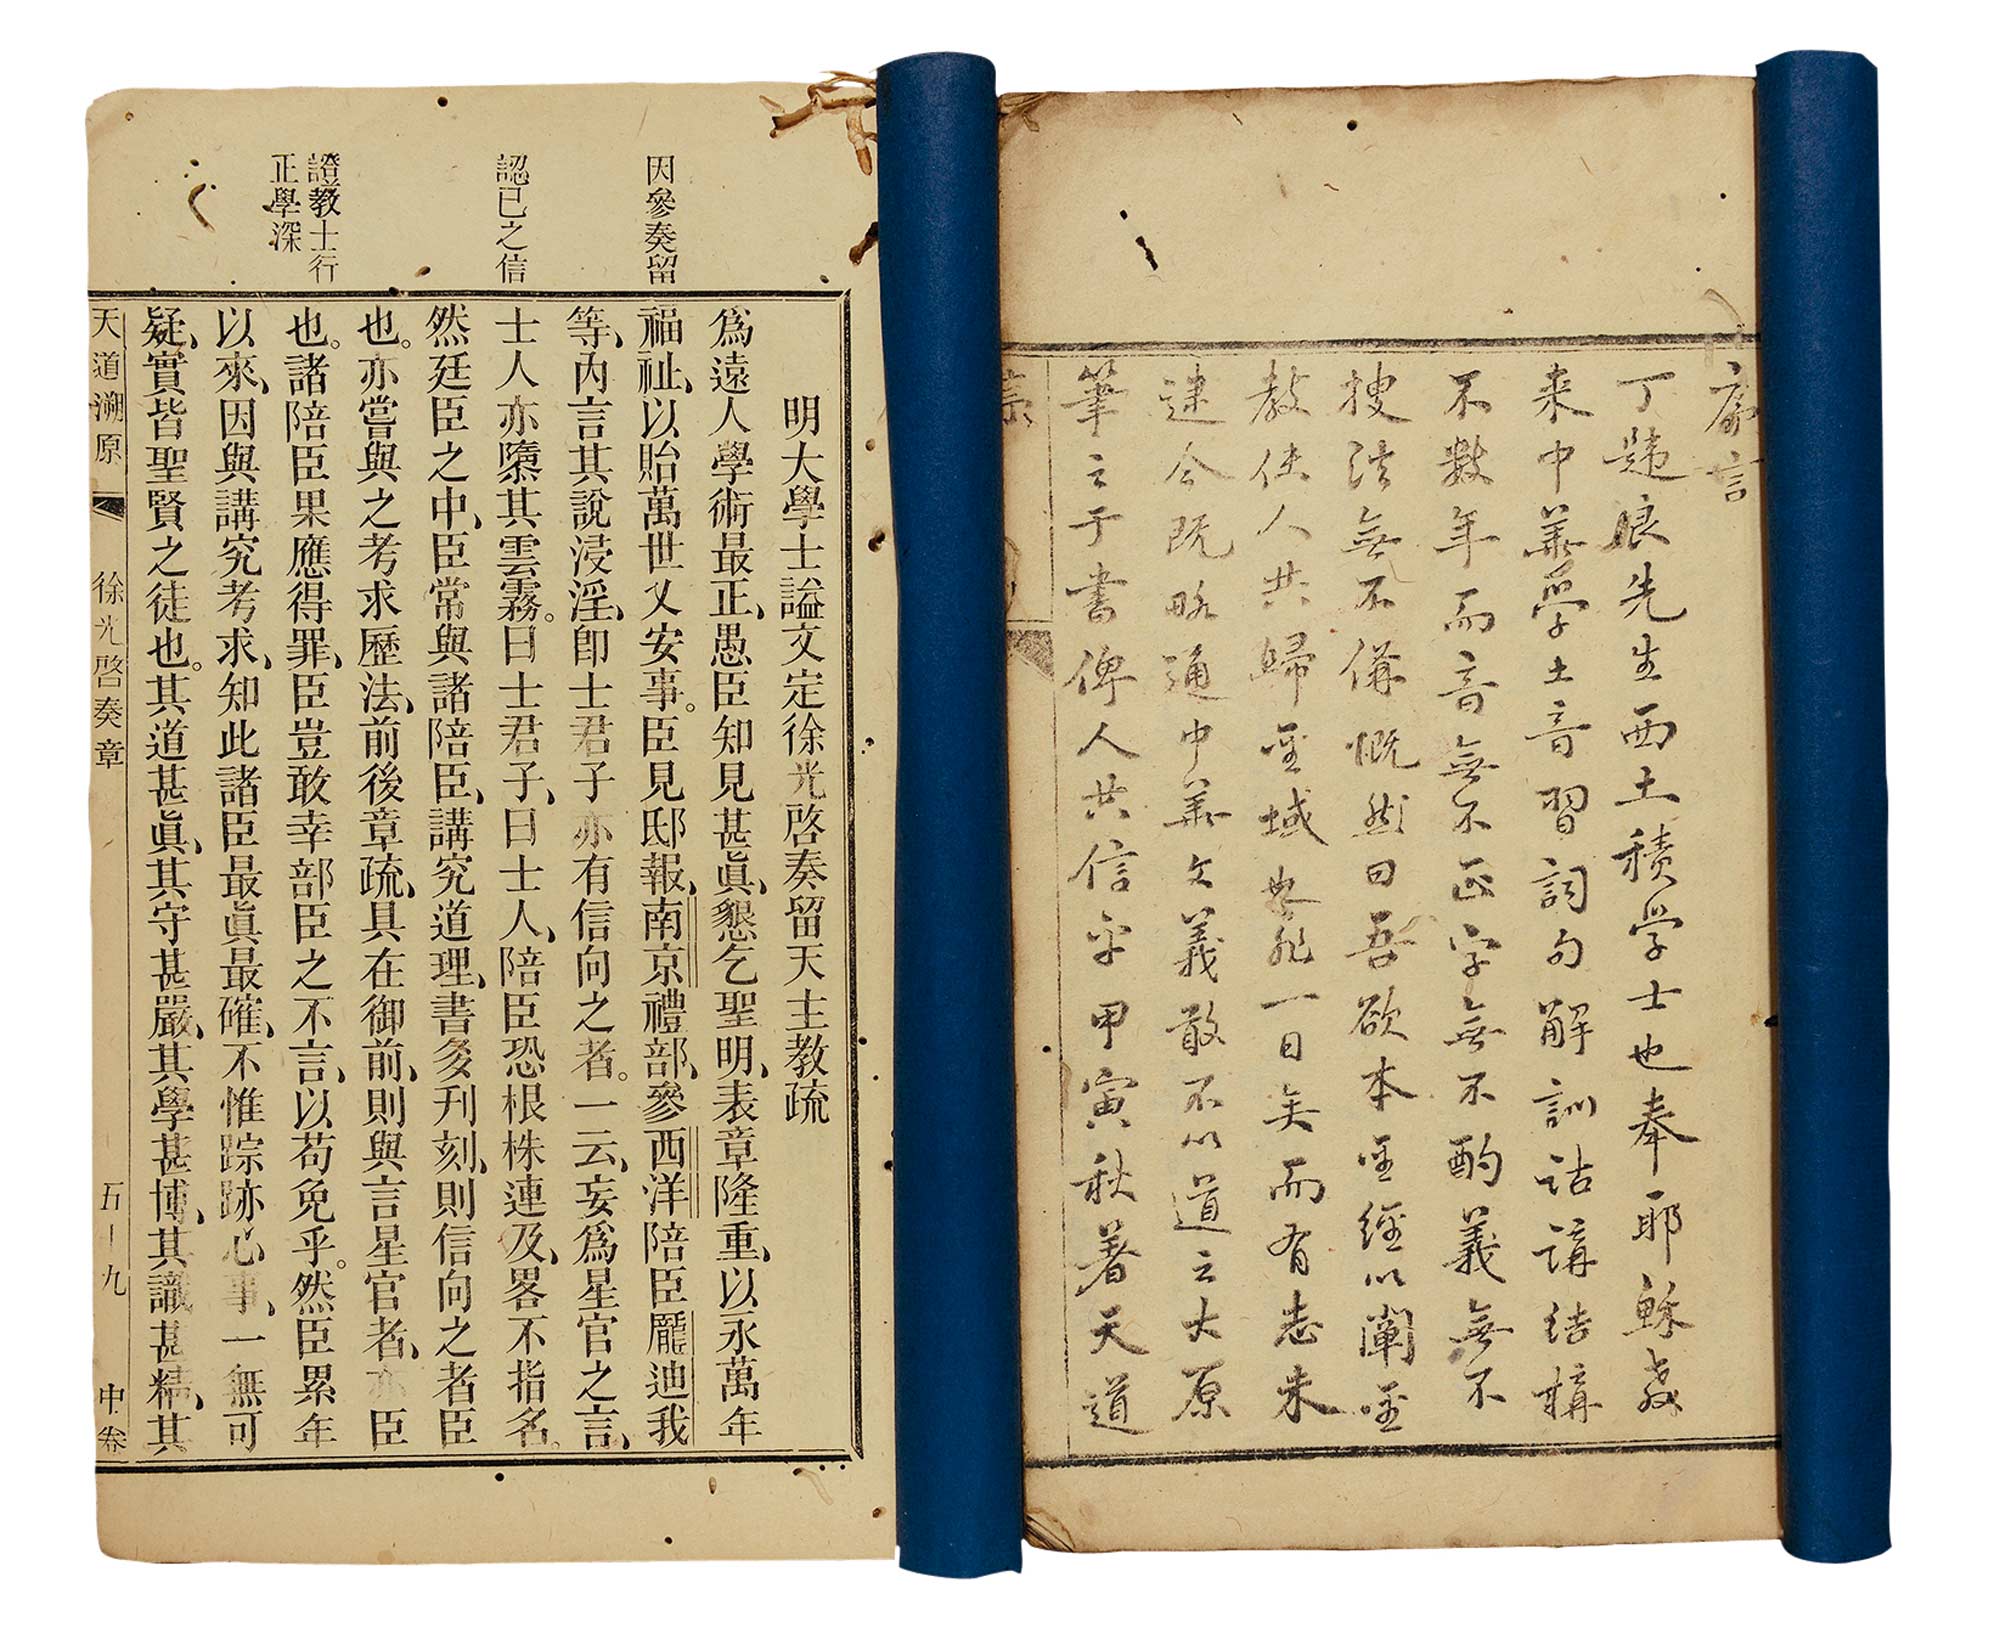 序言
丁韙良先生西土積学士也奉耶穌教
来中華學土音習詞句解訓詁講結構
不數年而音無不正字無不酌義無不
搜法無不備慨然曰吾欲本聖經以闡聖
教使人共歸聖域無非一日矣而有志未
逮今既略通中華文義敢不以道之大原
筆之于書俾人共信乎甲寅秋著天道
因參奏留
認已之信
證教士行
正學深
明大學士謚文定徐光啓奏留天主教疏
爲遠人學術最正、愚臣知見甚眞、懇乞聖明、表章隆重、以永萬年
福祉、以貽萬世乂安事。臣見邸報、南京禮部、參西洋陪臣龐迪我
等、內言其說浸淫、卽士君子亦有信向之者。一云、妄爲星官之言、
士人亦墮其雲霧。曰士君子、曰士人、陪臣恐根株連及、畧不指名。
然廷臣之中、臣常與諸陪臣、講究道理、書多刋刻、則信向之者臣
也。亦嘗與之考求歷法、前後章疏、具在御前、則與言星官者、亦臣
也。諸陪臣果應得罪、臣豈敢幸部臣之不言、以苟免乎。然臣累年
以來、因與講究考求、知此諸臣最眞最確、不惟踪跡心事、一無可
疑、實皆聖賢之徒也。其道甚眞、其守甚嚴、其學甚博、其識甚精、其
天道溯原 徐光啓奏章 五-九 中卷